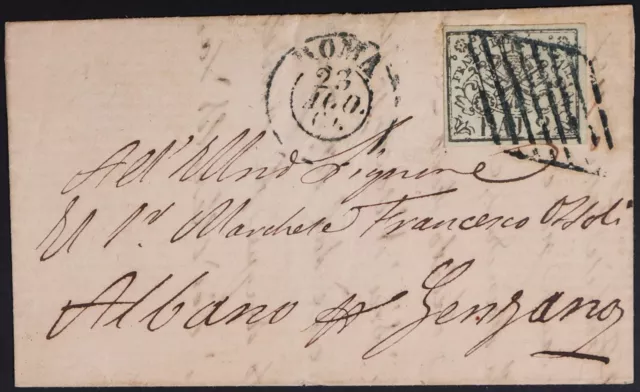 ROMA
23
AGO.
All'Illmo Signore
Il Sr Marchese Francesco Ossoli
Albano pr Genzano